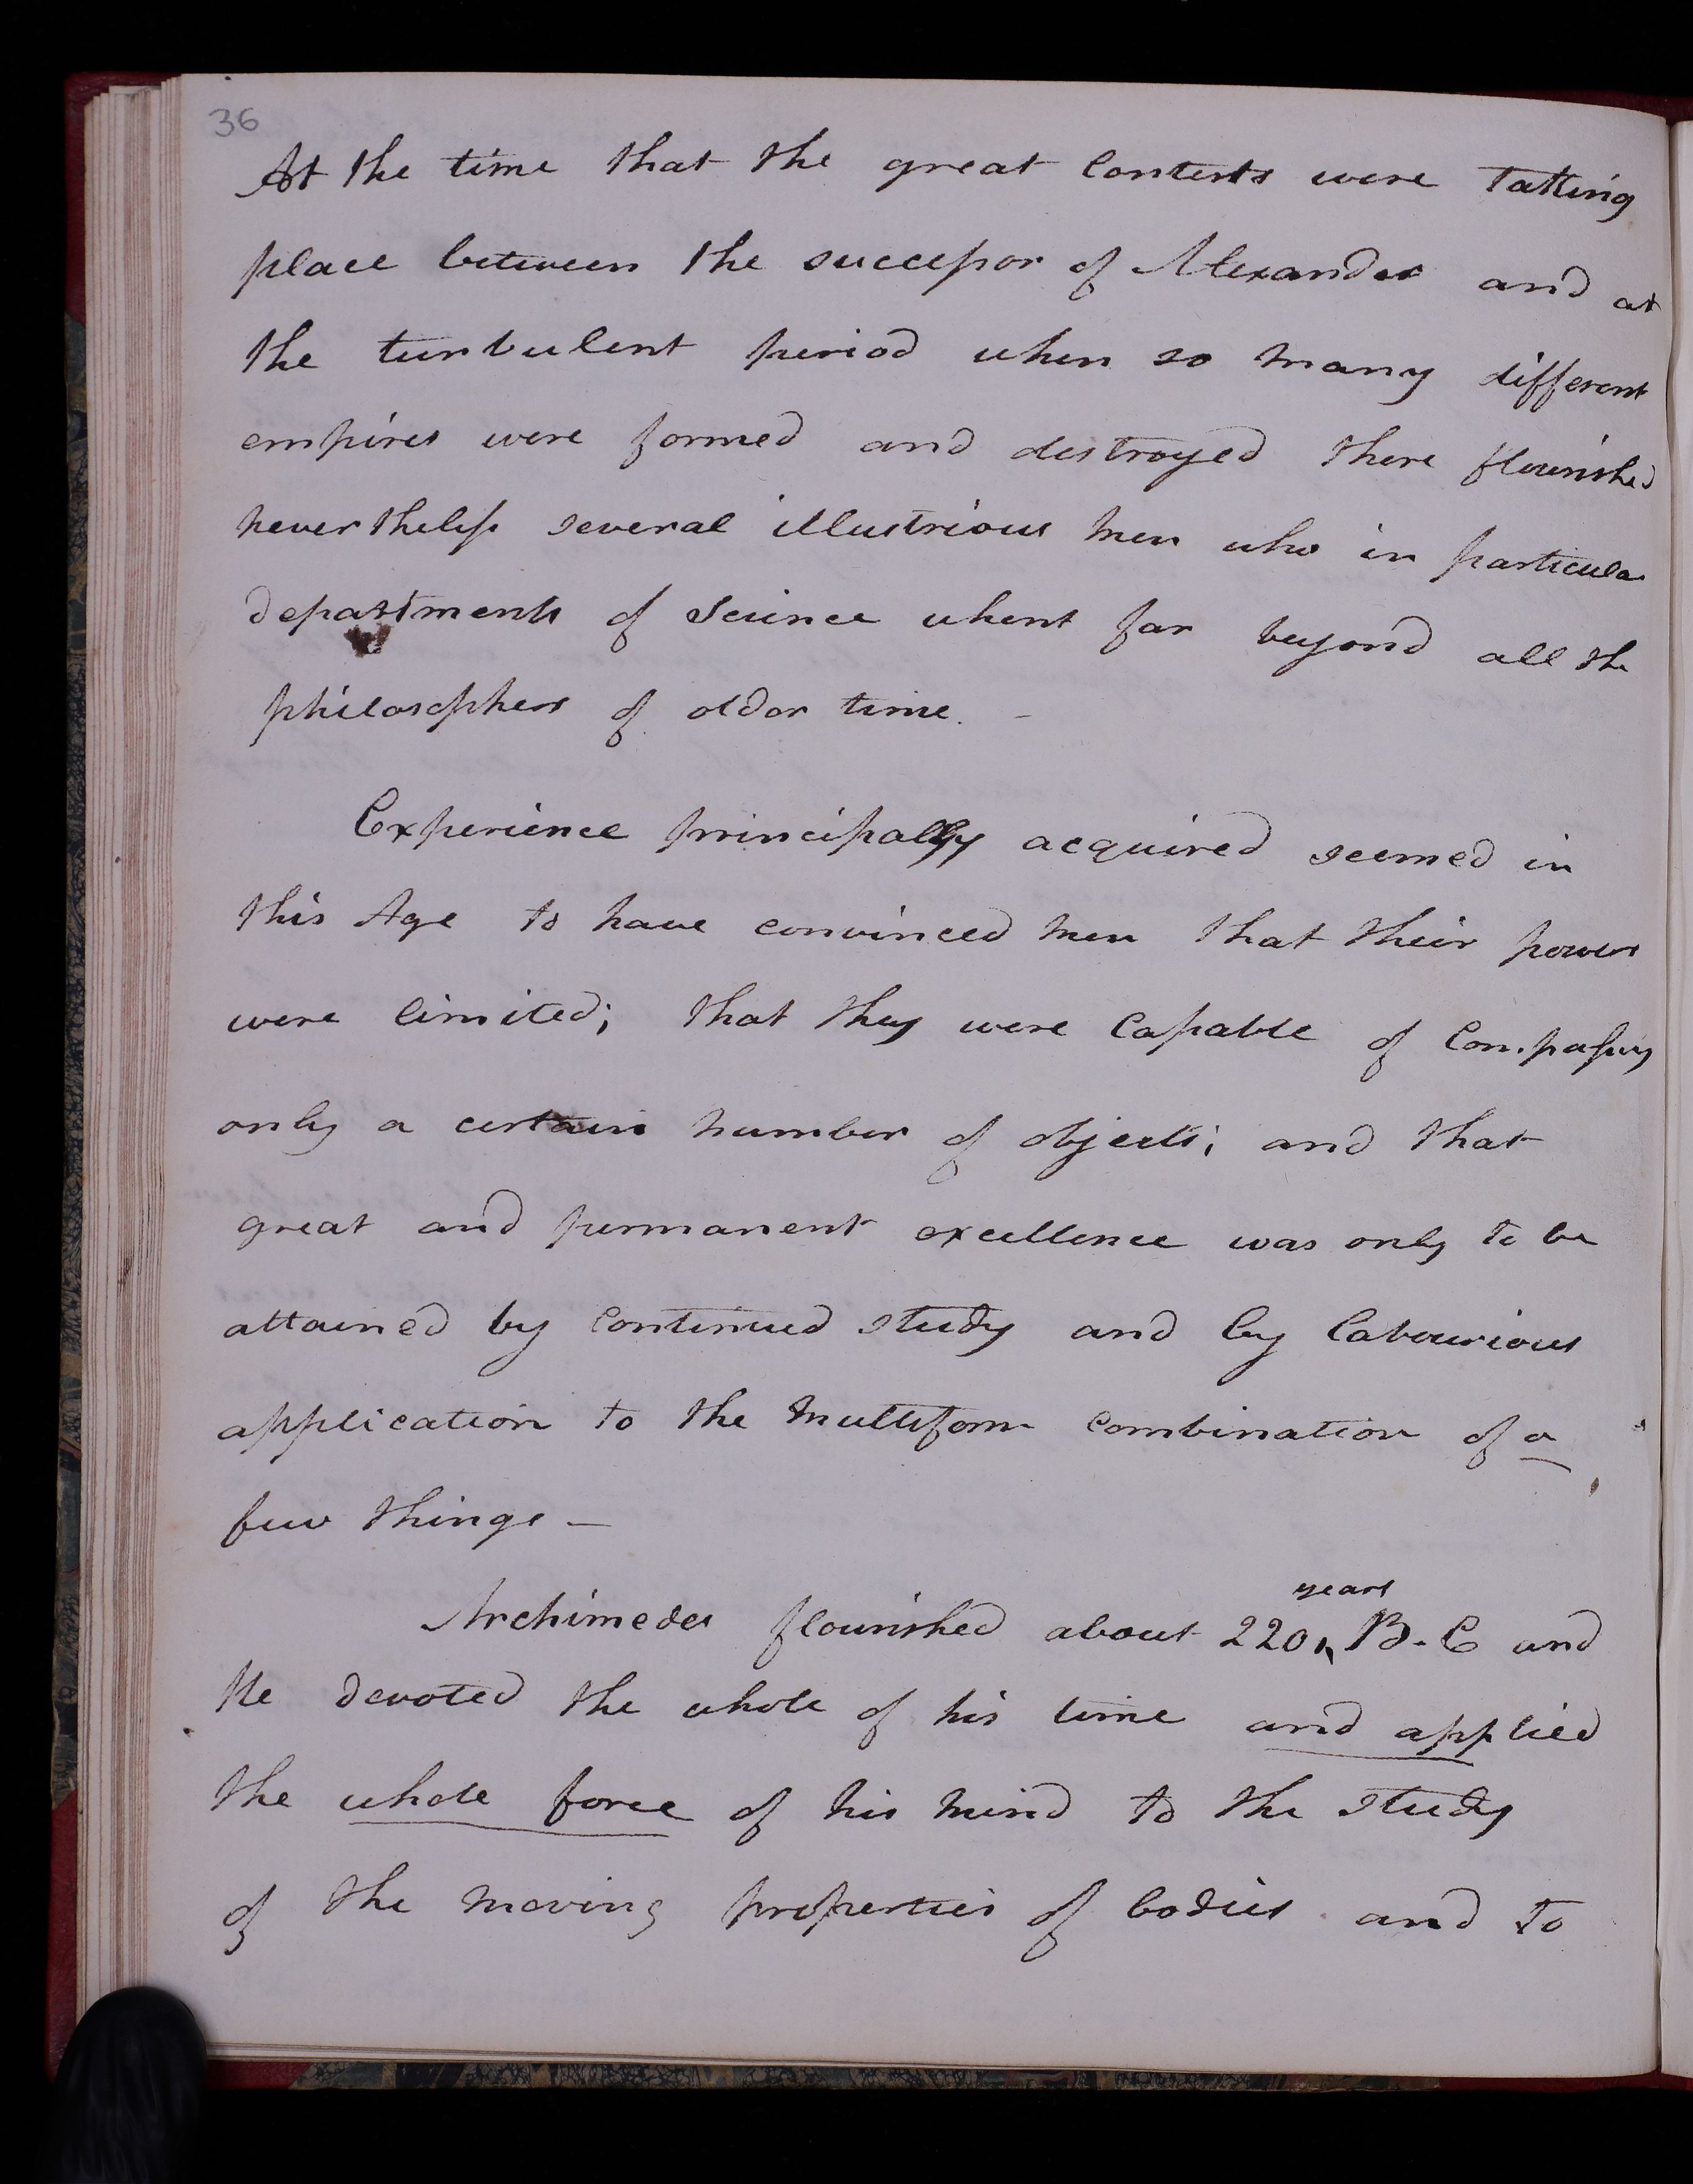 36
At the time that the great Contests were Taking
place between the successor of Alexander and at
the turbulent period when so many different
empires were formed and destroyed there flourished
never theless several illustrious men who in particular
departments of Science whent far beyond all the
philosophers of older time. -
Experience principally acquired seemed in
this Age to have convinced men that their powers
were limited; that they were Capable of Compassing
only a certain number of objects; and that
great and permanent excellence was only to be
attained by Continued study and by labourious
application to the Multiform Combination of a
few things -
years
Archimedes flourished about 220 B. C and
He devoted the whole of his time and applied
the whole force of his mind to the study
of the moving properties of bodies and to